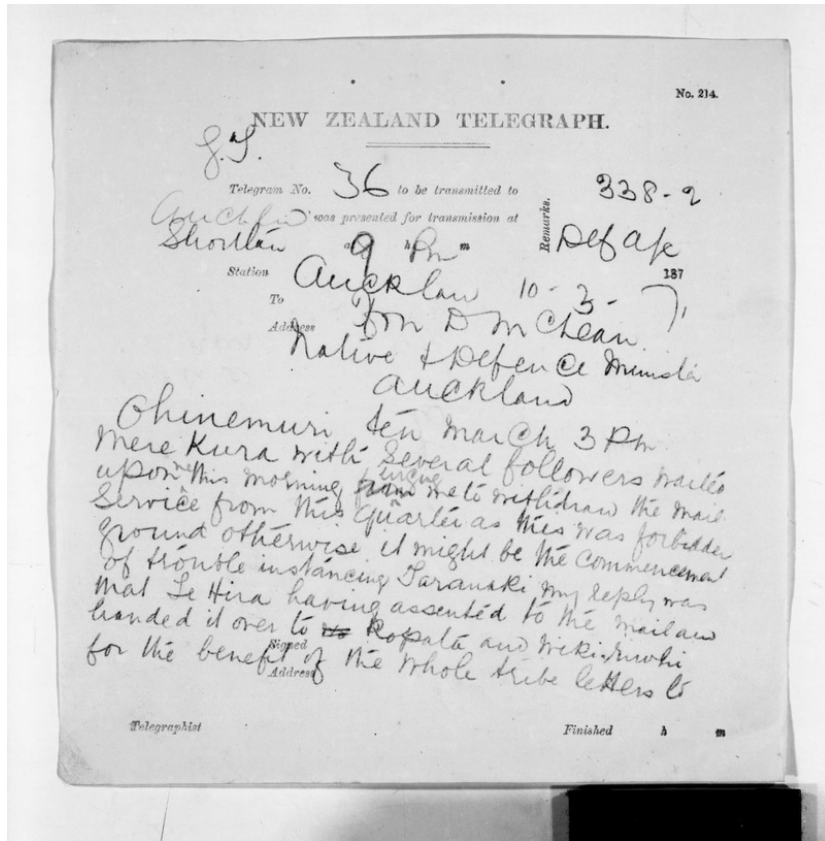 No. 214.
NEW ZEALAND TELEGRAPH.
Telegram No. 36 to be transmitted to
338-2
was presented for transmission at
Remarks.
at 9 h Pm m
Station
187
Auckland 10-3-71
To
Address
Hon D McLean
Native & Defence Minister
Auckland
Ohinemuri ten March 3 Pm
Mere Kura with several followers waited
upon me this morning urging me to withdraw the mail
service from this quarter as this was forbidden
ground otherwise it might be the commencement
of trouble instancing Taranaki my reply was
that Te Hira having assented to the mail and
handed it over to Ropata and
Signed
for the benefit of the whole tribe letters to
Address
Telegraphist
Finished h m